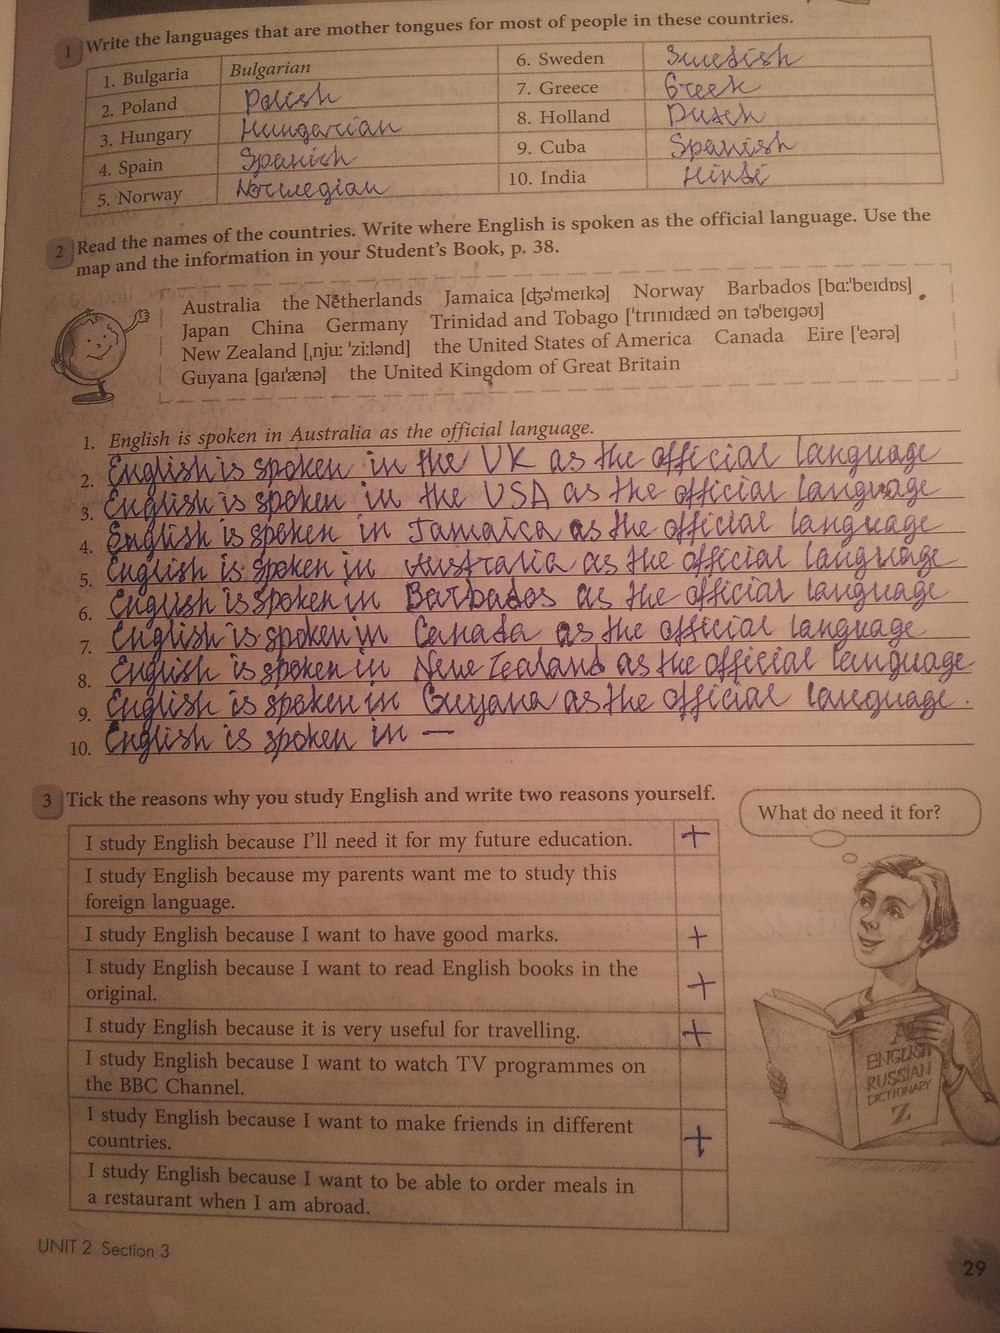 1 Write the languages that are mother tongues for most of people in these countries.
1. Bulgaria Bulgarian 6. Sweden Swedish
2. Poland Polish 7. Greece Greek
3. Hungary Hungarian 8. Holland Dutch
4. Spain Spanish 9. Cuba Spanish
5. Norway Norwegian 10. India Hindi
2 Read the names of the countries. Write where English is spoken as the official language. Use the
map and the information in your Student's Book, p. 38.
Australia the Netherlands Jamaica [ʤə'meɪkə] Norway Barbados [bɑ:'beɪdɒs]
Japan China Germany Trinidad and Tobago ['trɪnɪdæd ən tə'beɪgəʊ]
New Zealand [ˌnju: 'zi:lənd] the United States of America Canada Eire ['eərə]
Guyana [gaɪ'ænə] the United Kingdom of Great Britain
1. English is spoken in Australia as the official language.
2. English is spoken in the UK as the official language
3. English is spoken in the USA as the official language
4. English is spoken in Jamaica as the official language
5. English is spoken in Australia as the official language
6. English is spoken in Barbados as the official language
7. English is spoken in Canada as the official language
8. English is spoken in New Zealand as the official language
9. English is spoken in Guyana as the official language.
10. English is spoken in —
3 Tick the reasons why you study English and write two reasons yourself.
What do need it for?
I study English because I'll need it for my future education. +
I study English because my parents want me to study this
foreign language.
I study English because I want to have good marks. +
I study English because I want to read English books in the
original. +
I study English because it is very useful for travelling. +
I study English because I want to watch TV programmes on
the BBC Channel.
I study English because I want to make friends in different
countries. +
I study English because I want to be able to order meals in
a restaurant when I am abroad.
A
ENGLISH
RUSSIAN
DICTIONARY
Z
UNIT 2 Section 3
29